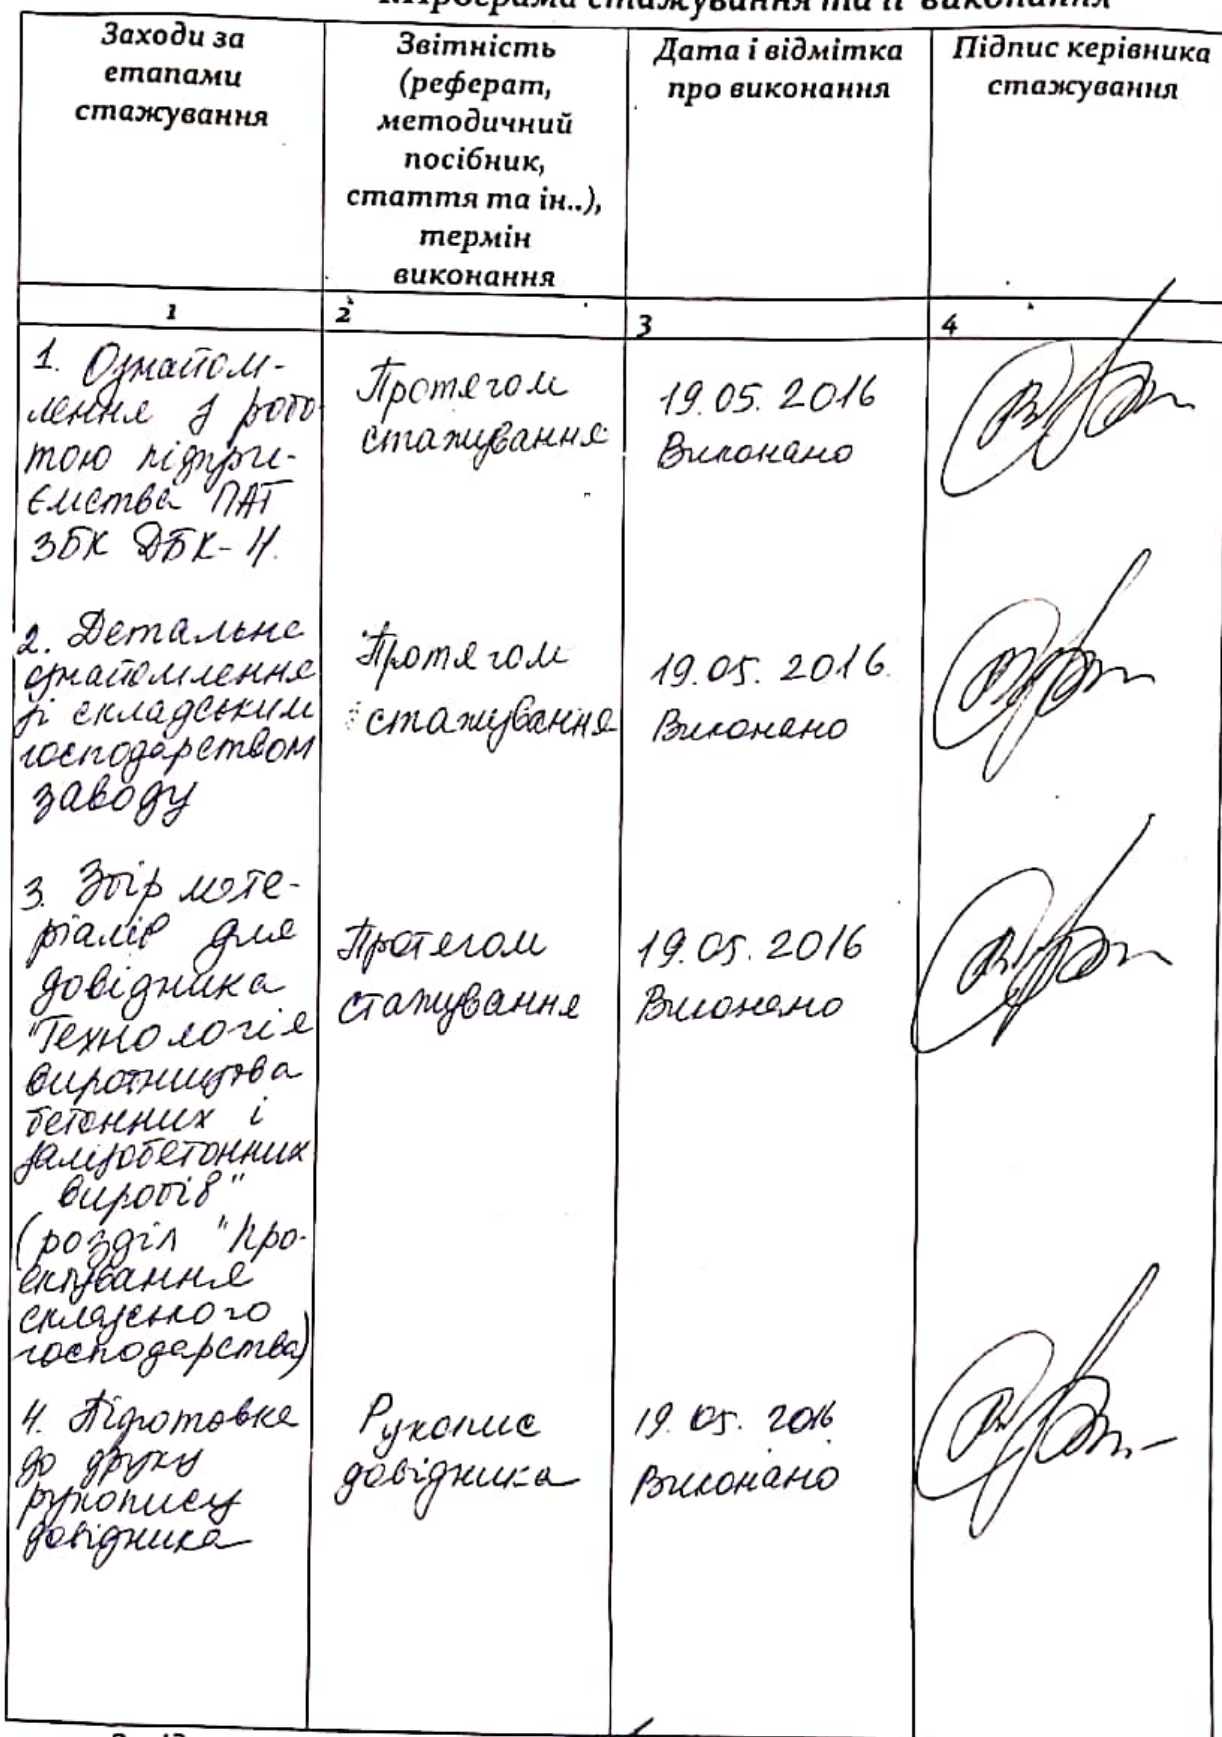 Програма стажування та її виконання
Заходи за
етапами
стажування
Звітність
(реферат,
методичний
посібник,
стаття та ін..),
термін
виконання
Дата і відмітка
про виконання
Підпис керівника
стажування
1
2
3
4
1. Ознайом-
лення з робо-
тою підпри-
ємства ПАТ
ЗБК ДБК-4.
Протягом
стажування
19.05.2016
Виконано
2. Детальне
ознайомлення
зі складським
господарством
заводу
Протягом
стажування
19.05.2016.
Виконано
3. Збір мате-
ріалів для
довідника
"Технологія
виробництва
бетонних і
залізобетонних
виробів"
(розділ "Про-
ектування
складського
господарства)
Протягом
стажування
19.05.2016
Виконано
4. Підготовка
до друку
рукопису
довідника
Рукопис
довідника
19.05.2016
Виконано